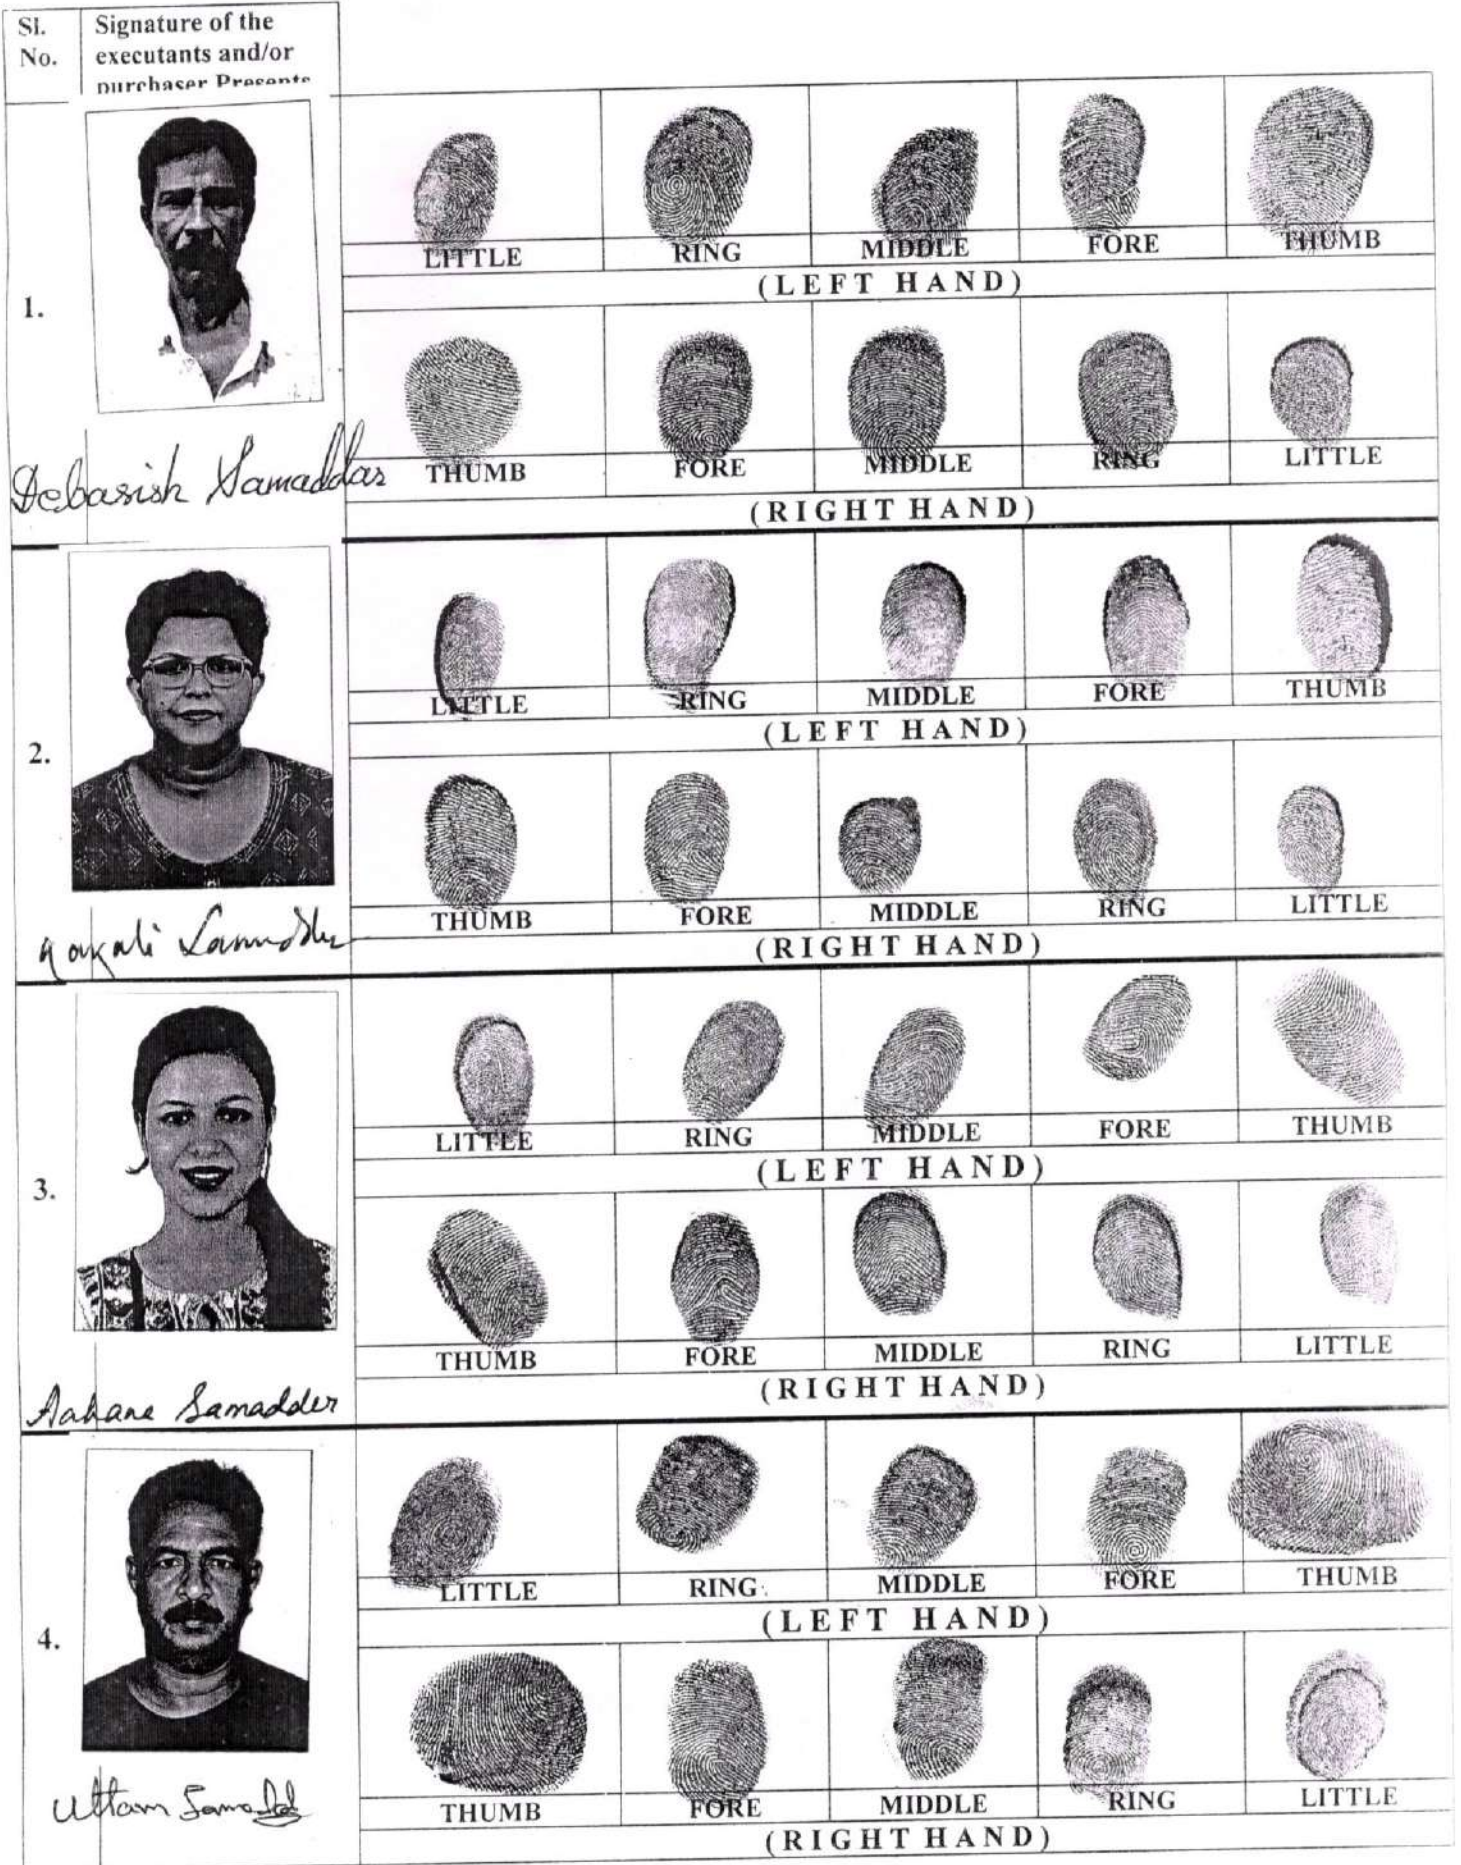 Sl. No.
Signature of the
executants and/or
purchaser Presents
1.
LITTLE RING MIDDLE FORE THUMB
(LEFT HAND)
THUMB FORE MIDDLE RING LITTLE
(RIGHT HAND)
Debasish Samaddar
2.
LITTLE RING MIDDLE FORE THUMB
(LEFT HAND)
THUMB FORE MIDDLE RING LITTLE
(RIGHT HAND)
3.
LITTLE RING MIDDLE FORE THUMB
(LEFT HAND)
THUMB FORE MIDDLE RING LITTLE
(RIGHT HAND)
Samadder
4.
LITTLE RING MIDDLE FORE THUMB
(LEFT HAND)
THUMB FORE MIDDLE RING LITTLE
(RIGHT HAND)
Uttam